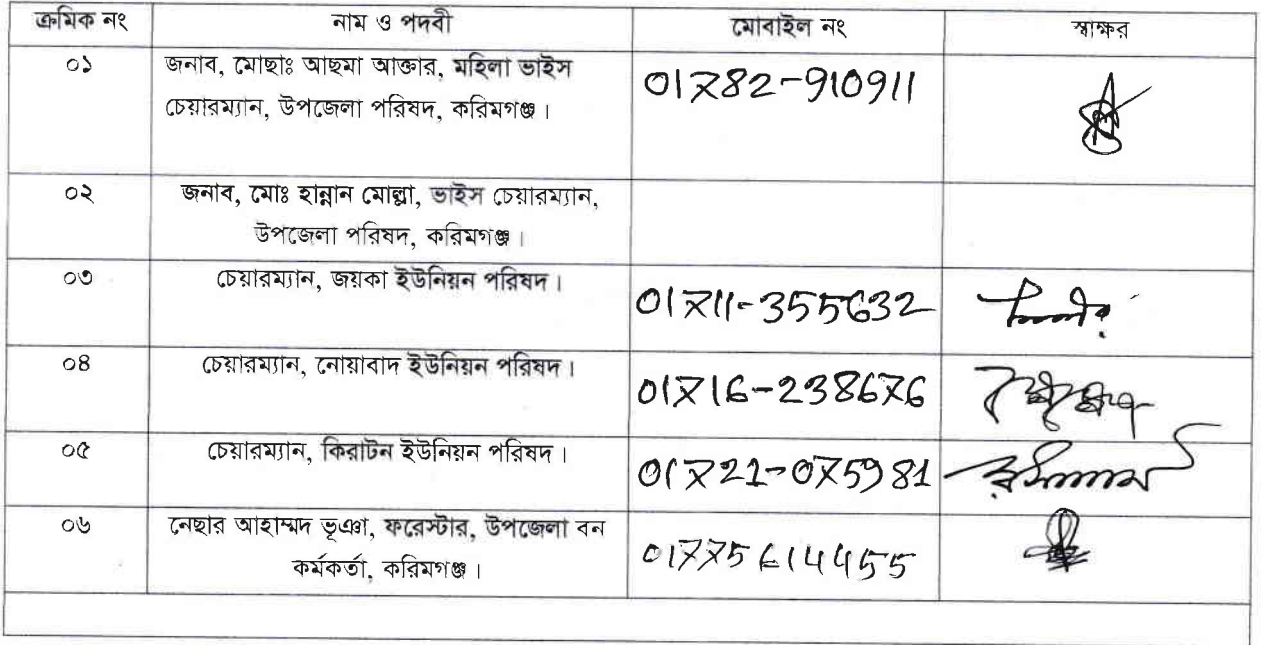 ক্রমিক নং নাম ও পদবী মোবাইল নং স্বাক্ষর
০১ জনাব, মোছাঃ আছমা আক্তার, মহিলা ভাইস 01782-910911
চেয়ারম্যান, উপজেলা পরিষদ, করিমগঞ্জ।
০২ জনাব, মোঃ হান্নান মোল্লা, ভাইস চেয়ারম্যান,
উপজেলা পরিষদ, করিমগঞ্জ।
০৩ চেয়ারম্যান, জয়কা ইউনিয়ন পরিষদ। 01711-355632
০৪ চেয়ারম্যান, নোয়াবাদ ইউনিয়ন পরিষদ। 01716-238676
০৫ চেয়ারম্যান, কিরাটন ইউনিয়ন পরিষদ। 01721-075981
০৬ নেছার আহাম্মদ ভূঞা, ফরেস্টার, উপজেলা বন 01775614455
কর্মকর্তা, করিমগঞ্জ।